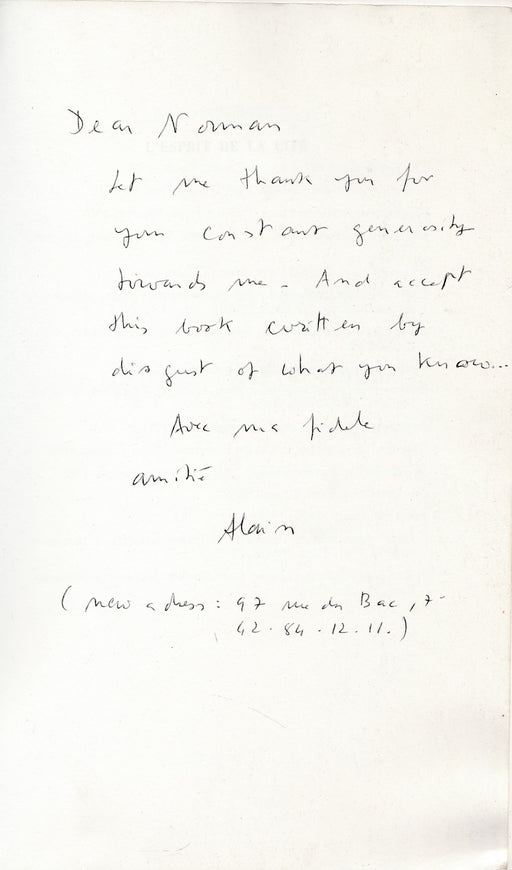 Dear Norman
L'ESPRIT DE LA CITÉ
Let me thank you for
your constant generosity
towards me - And accept
this book written by
disgust of what you know...
Avec ma fidèle
amitié
Alain
(new adress: 97 rue du Bac, 7-
42.84.12.11.)